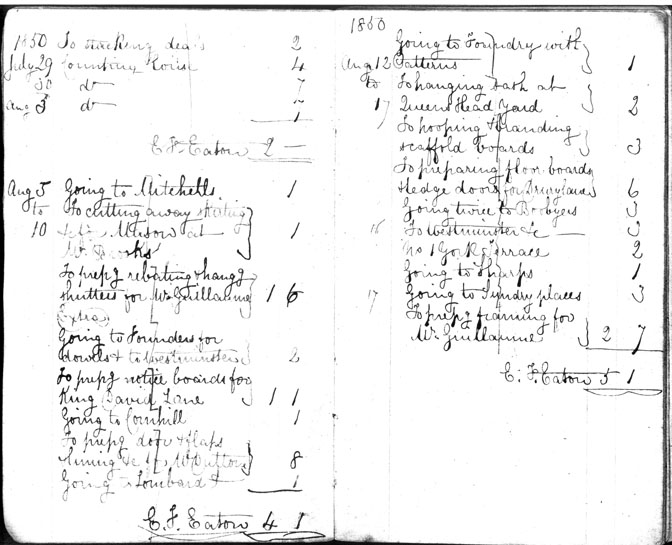 1850 To stacking deals 2
July 29 Counting House 4
30 do 7
Aug 3 do 7
1
E. F. Eaton 2 —
Aug 5 Going to Mitchells 1
to To cutting away
10 at 1
Mr
To prepg rebating & hangg
shutters for Mr Guillaume 1 6
Extra
Going to Founders for
dowels & to Westminster 2
To prepg notice boards for
King David Lane 1 1
Going to Cornhill 1
To prepg door & flaps
lining &c for Mr Dutton 8
Going to Lombard St 1
E. F. Eaton 4 1
1850
Going to Foundry with
Aug 12 Patterns 1
to To hanging sash at
17 Queens Head Yard 2
To hooping & branding
scaffold boards 3
To preparing floor boards
sledge doors for Drury Lane 6
Going twice to Boobyers 3
16 To Westminster &c — 3
No 1 York Terrace 2
Going to Sharps 1
17 Going to Sundry places 3
To prepg framing for
Mr Guillaume 2 7
E. F. Eaton 5 1